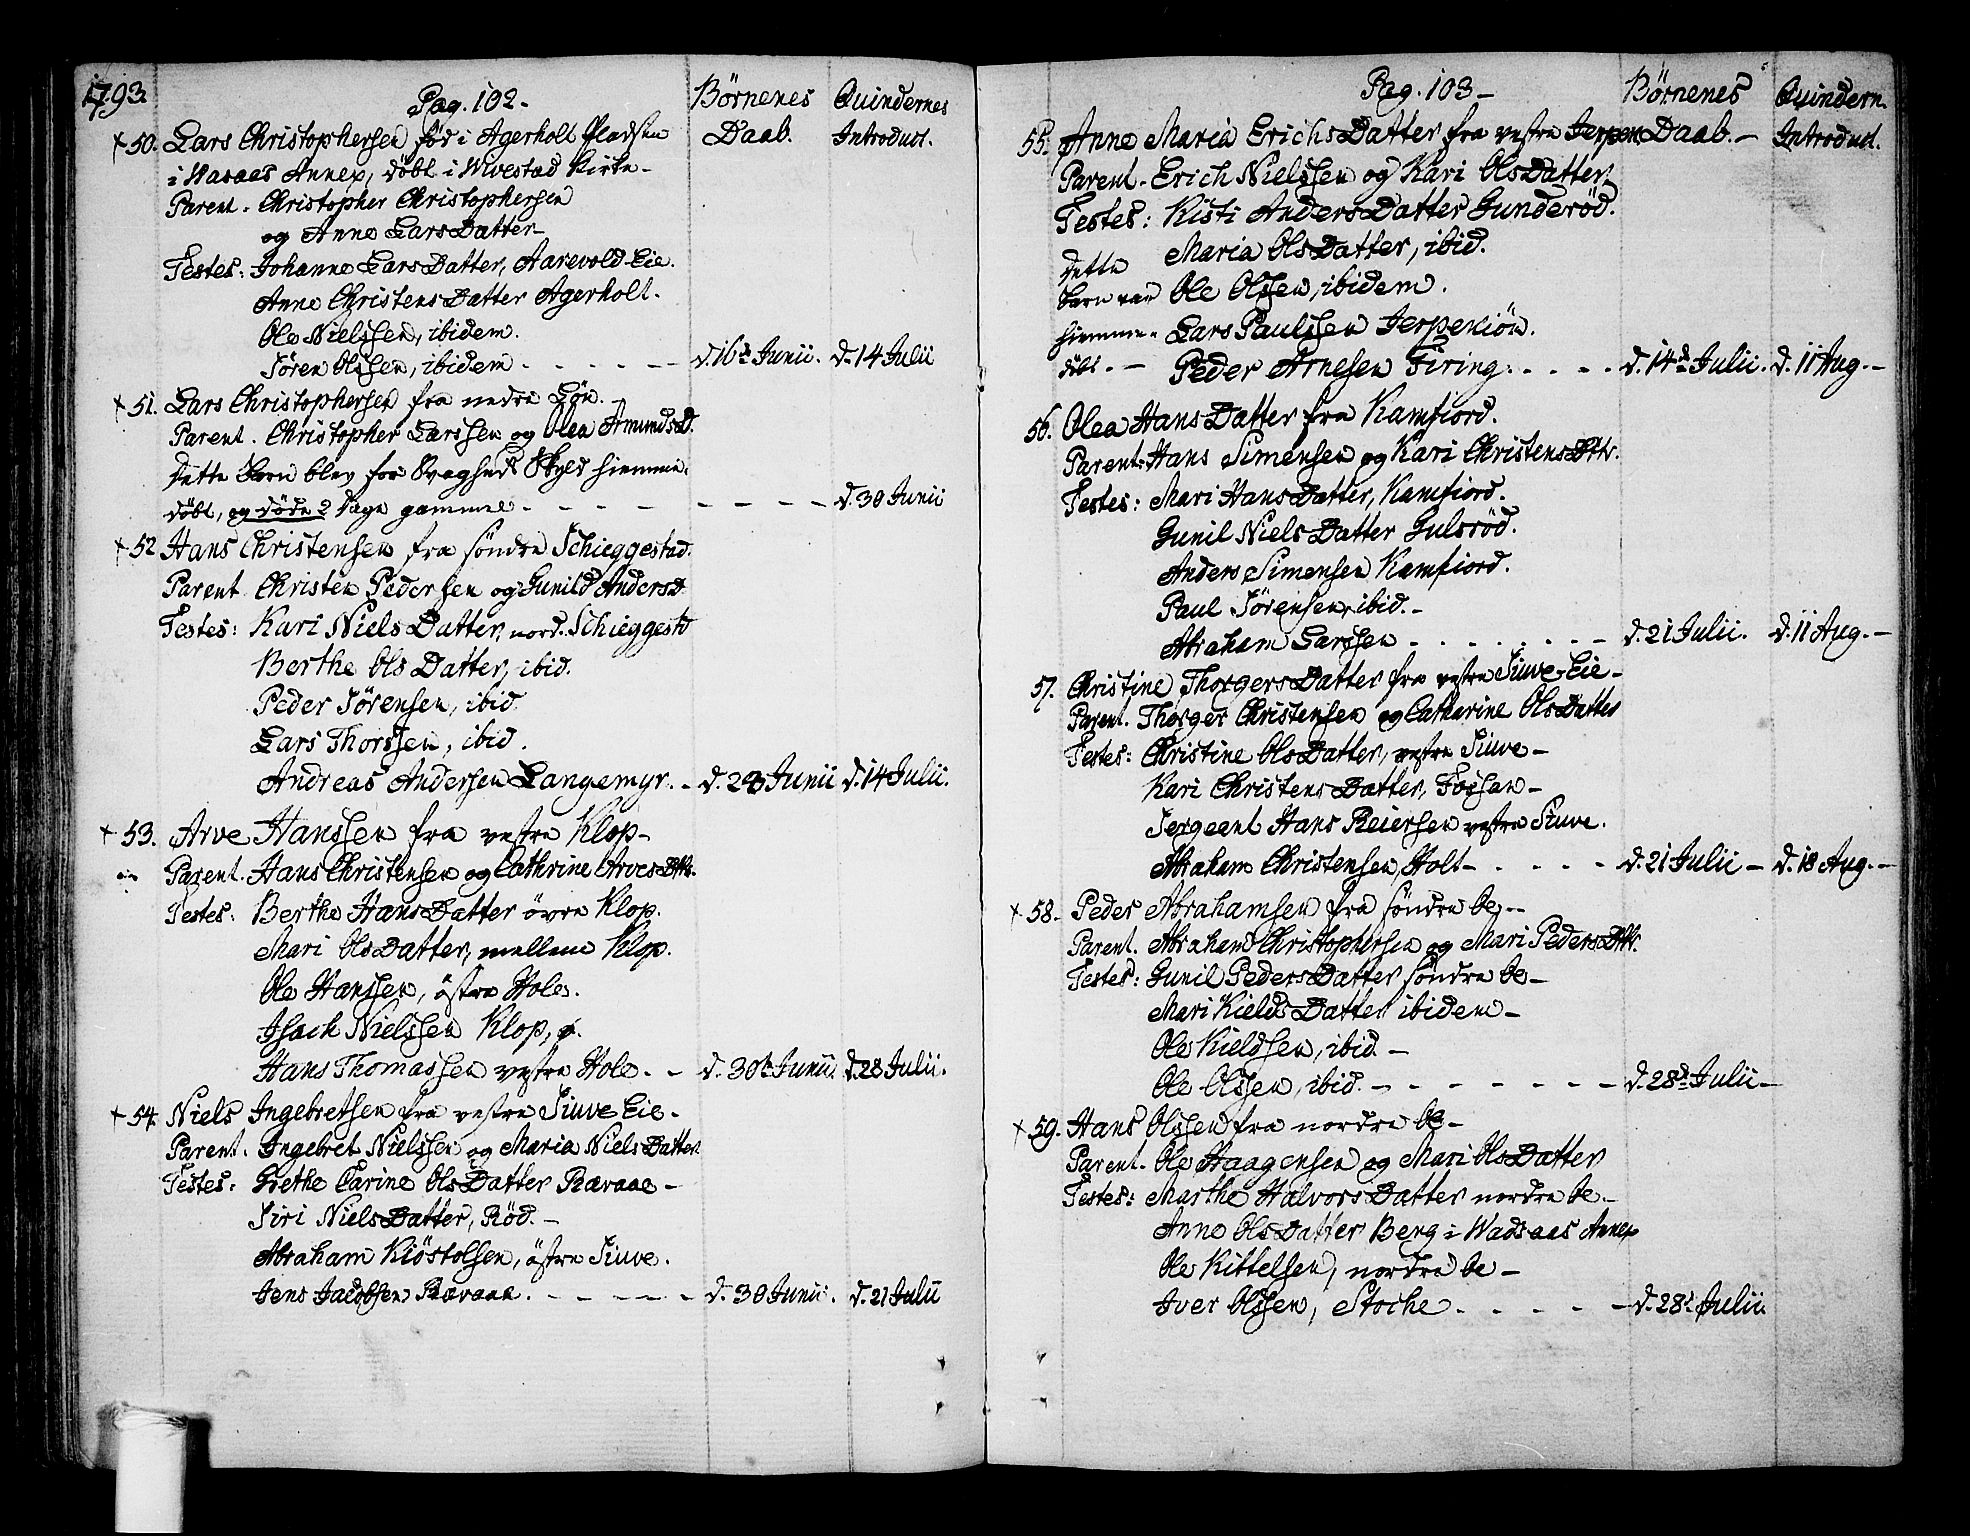 1793.
Pag. 102.
Börnenes Quindernes
Daab. Introduct.
+ 50. Lars Christophersen, fød i Agerholt Pladsen
i Wasaas Annex, døbt i Wivestad Kirke -
Parent. Christopher Christophersen
og Anne LarsDatter -
Testes: Johanne LarsDatter, Aarevold-Eie.
Anne ChristensDatter Agerholt.
Ole Nielssen, ibidem.
Sören Olssen, ibidem - - - - - d. 16de Junii. d. 14 Julii
+ 51. Lars Christophersen fra nedre Løn. -
Parent. Christopher Larssen og Olea Amundsd.
dette Barn blev for Svagheds Skyld hiemme-
døbt, og døde 2 Dage gammel - - - - - - - d. 30 Junii
+ 52 Hans Christensen fra söndre Schieggestad.
Parent. Christen Pedersen og Gunild Andersd
Testes: Kari NielsDatter, nord. Schieggestd
Berthe OlsDatter, ibid.
Peder Sörensen, ibid.
Lars Thorssen, ibid.
Andreas Andersen Langemyr. - d. 23 Junii d. 14 Julii.
+ 53. Arve Hanssen fra vestre Klop -
Parent. Hans Christensen og Cathrine ArvesDttr.
Testes: Berthe HansDatter övre Klop.
Mari OlsDatter, mellem Klop.
Ole Hanssen, östre Hole.
Isach Nielssen Klop,
Hans Thomassen vestre Hole. - d. 30te Junii. d. 28 Julii.
+ 54. Niels Ingebretsen fra vestre Siuve Eie -
Parent. Ingebret Nielssen og Maria NielsDatter
Testes: Grethe Carine OlsDatter Rævaae -
Siri NielsDatter, Röd. -
Abraham Kiöstolsen, östre Siuve.
Jens Jacobsen Rævaae. - - - - - d. 30 Junii. d. 21 Julii
Pag. 103 -
Börnenes Quindern.
Daab. - Introduct.
55. Anne Maria ErichsDatter fra vestre Jerpen
Parent. Erich Nielssen og Kari OlsDatter
Testes: Kisti AndersDatter Gunderöd.
Maria OlsDatter, ibid.
dette
Barn var Ole Olssen, ibidem.
hiemme- Lars Paulssen Jerpekiön.
døbt. - Peder Arnesen Firing. . . . . d. 14de Julii. d. 11 Aug. -
56. Olea HansDatter fra Kamfiord.
Parent: Hans Simensen og Kari ChristensDttr.
Testes: Mari HansDatter, Kamfiord.
Gunil NielsDatter Gulsröd.
Anders Simensen Kamfiord.
Paul Sörensen, ibid. -
Abraham Larssen - - - - - - d. 21 Julii. d. 11 Aug. -
57. Christine ThorgersDatter fra vestre Siuve-Eie -
Parent. Thorger Christensen og Catharine OlsDatter
Testes: Christine OlsDatter, vestre Siuve -
Kari ChristensDatter, Fossen -
Sergeant Hans Reiersen vestre Siuve.
Abraham Christensen, Holt - - - - - d. 21 Julii - d. 18 Aug. -
+ 58. Peder Abrahamsen fra söndre Be - -
Parent. Abraham Christophersen og Mari PedersDttr.
Testes: Gunil PedersDatter söndre Be -
Mari KieldsDatter ibidem -
Ole Kieldsen, ibid. -
Ole Olssen, ibid. - - - - - - - d. 28de Julii -
+ 59. Hans Olssen fra nordre Be -
Parent. Ole Haagensen og Mari OlsDatter
Testes: Marthe HalvorsDatter nordre Be. -
Anne OlsDatter Berg i Wadsaas Annex
Ole Kittelsen, nordre Be -
Iver Olssen, Stoche. - - - - - d. 28de Julii.